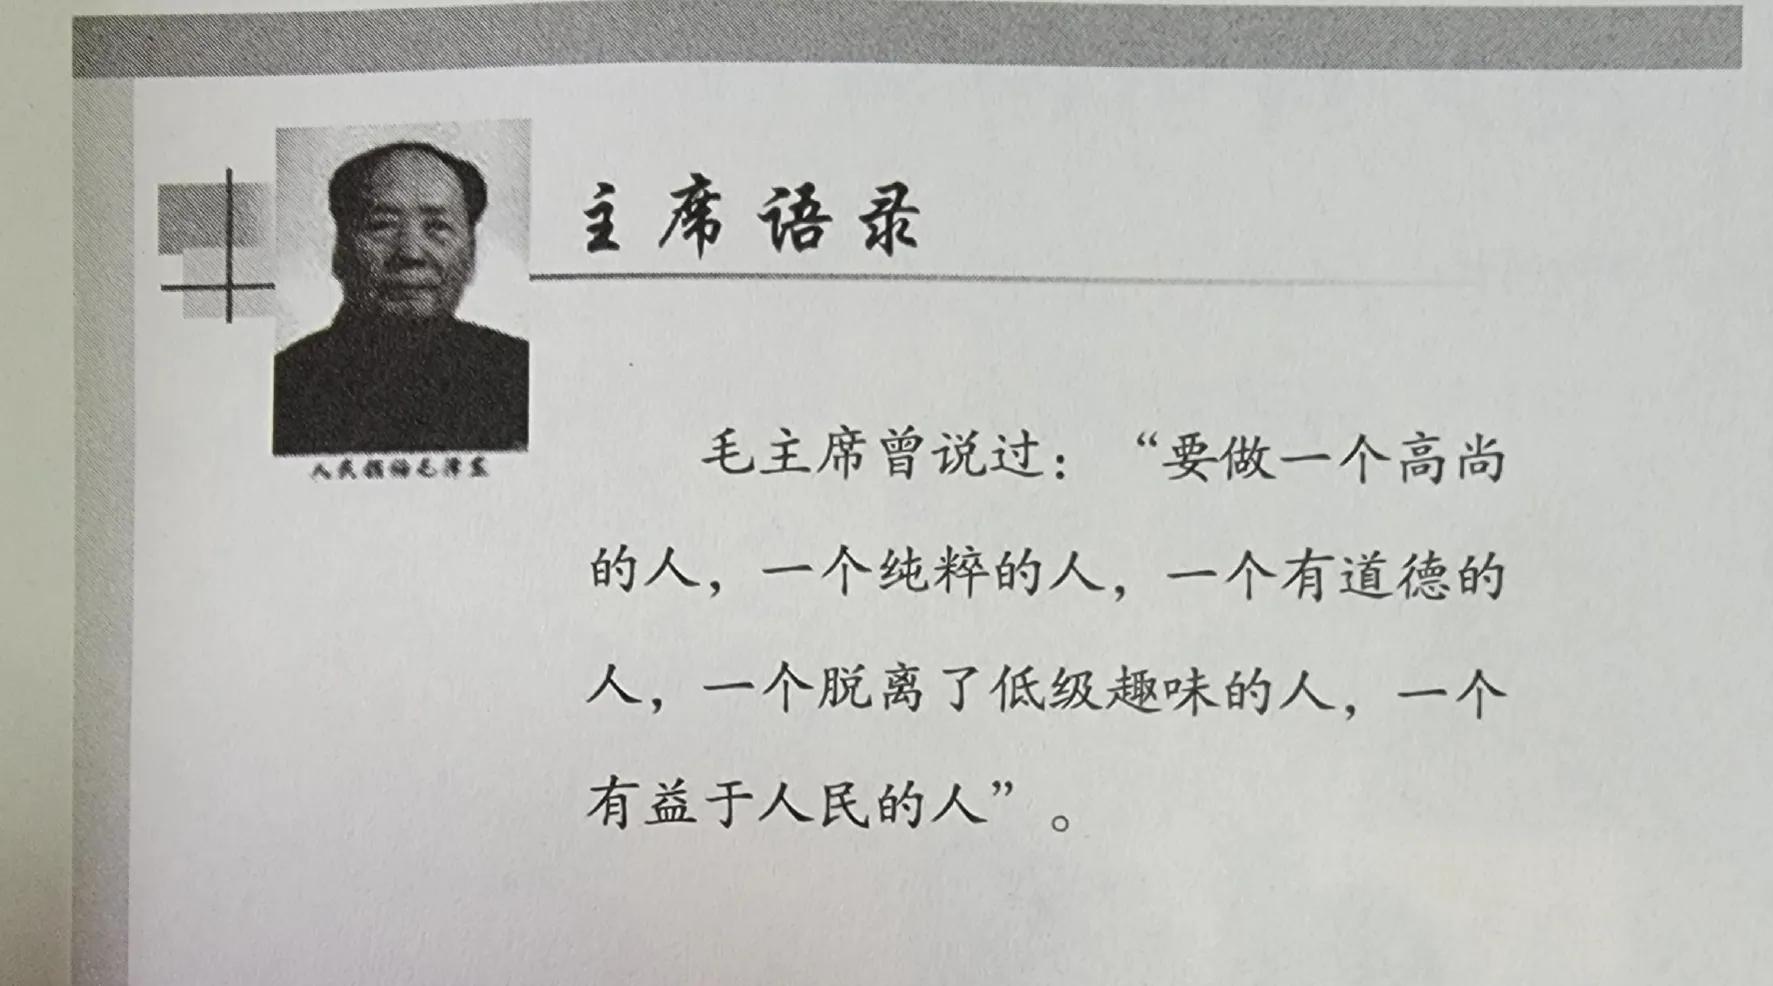 主席语录
人民领袖毛泽东
毛主席曾说过：“要做一个高尚
的人，一个纯粹的人，一个有道德的
人，一个脱离了低级趣味的人，一个
有益于人民的人”。